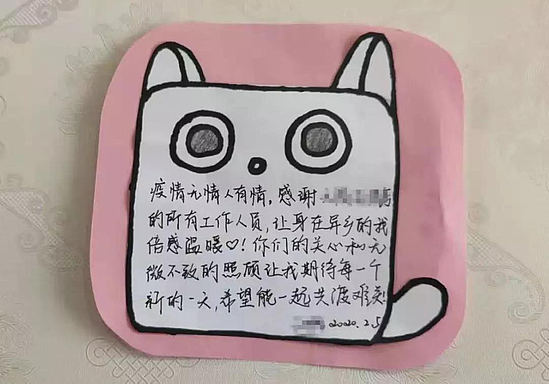 疫情无情人有情,感谢
的所有工作人员,让身在异乡的我
倍感温暖♡!你们的关心和无
微不致的照顾让我期待每一个
新的一天,希望能一起共渡难关!
2020.2.5